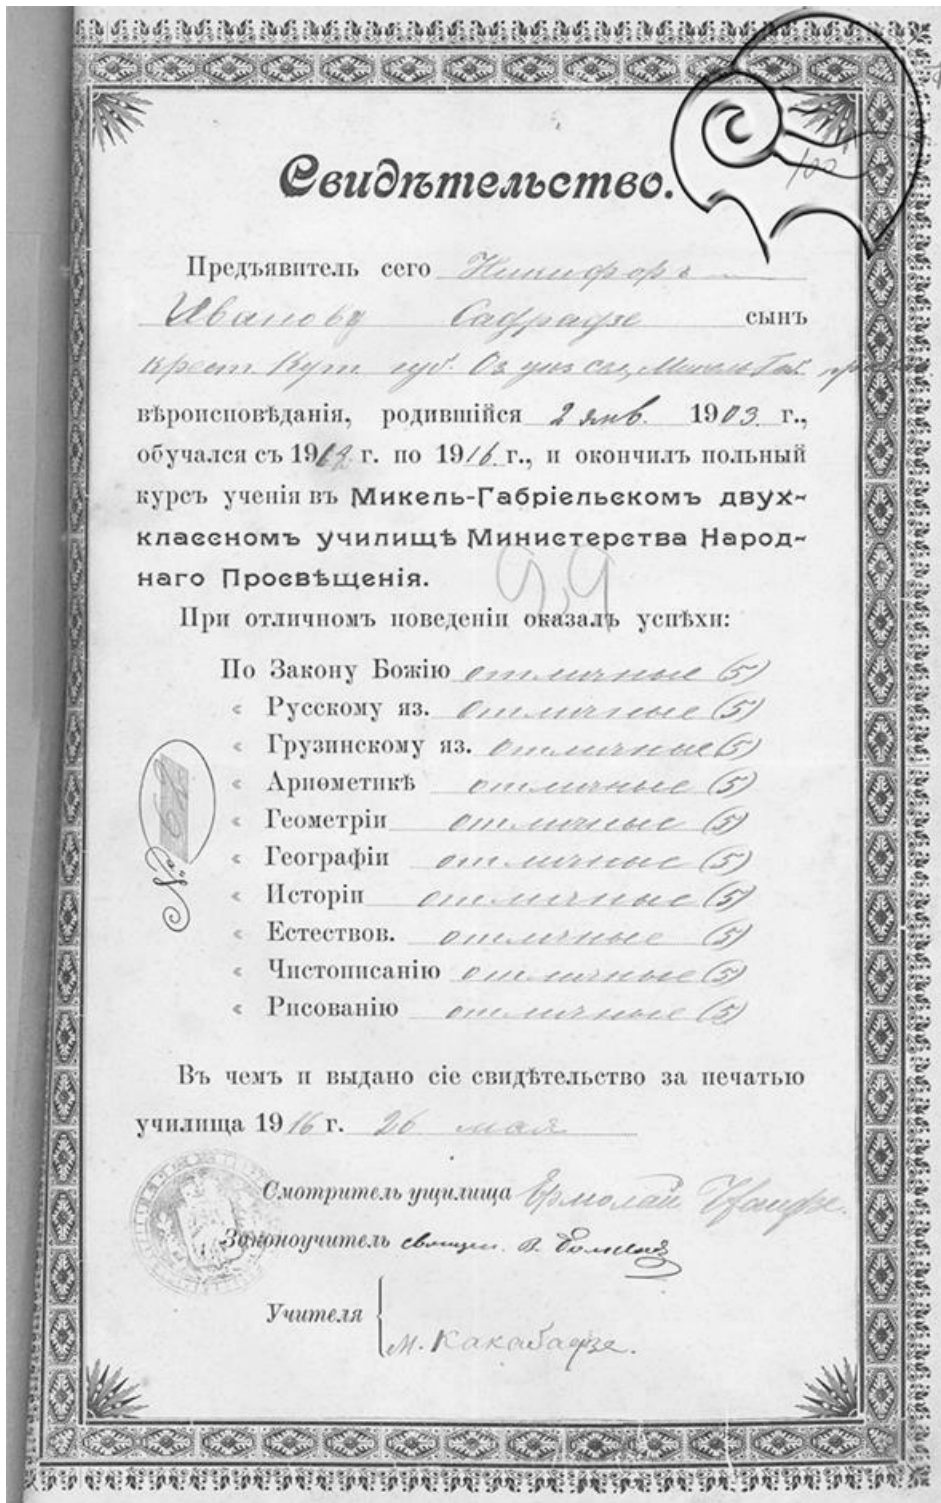 100
Свидѣтельство.
Предъявитель сего Никифоръ
Иванову Садрадзе сынъ
крест. Кут. губ. Оз. уез.
вѣроисповѣданія, родившійся 2 янв. 1903 г.,
обучался съ 1912 г. по 1916 г., и окончилъ польный
курсъ ученія въ Микель-Габріельскомъ двух-
классномъ училищѣ Министерства Народ-
наго Просвѣщенія.
99
При отличномъ поведеніи оказалъ успѣхи:
По Закону Божію отличные (5)
« Русскому яз. отличные (5)
« Грузинскому яз. отличные (5)
« Ариѳметикѣ отличные (5)
« Геометріи отличные (5)
« Географіи отличные (5)
« Исторіи отличные (5)
« Естествов. отличные (5)
« Чистописанію отличные (5)
« Рисованію отличные (5)
№ 62
Въ чемъ и выдано сіе свидѣтельство за печатью
училища 1916 г. 26 мая
Смотритель ущилища Ермолай
Законоучитель священ. В.
Учителя
М. Какабадзе.